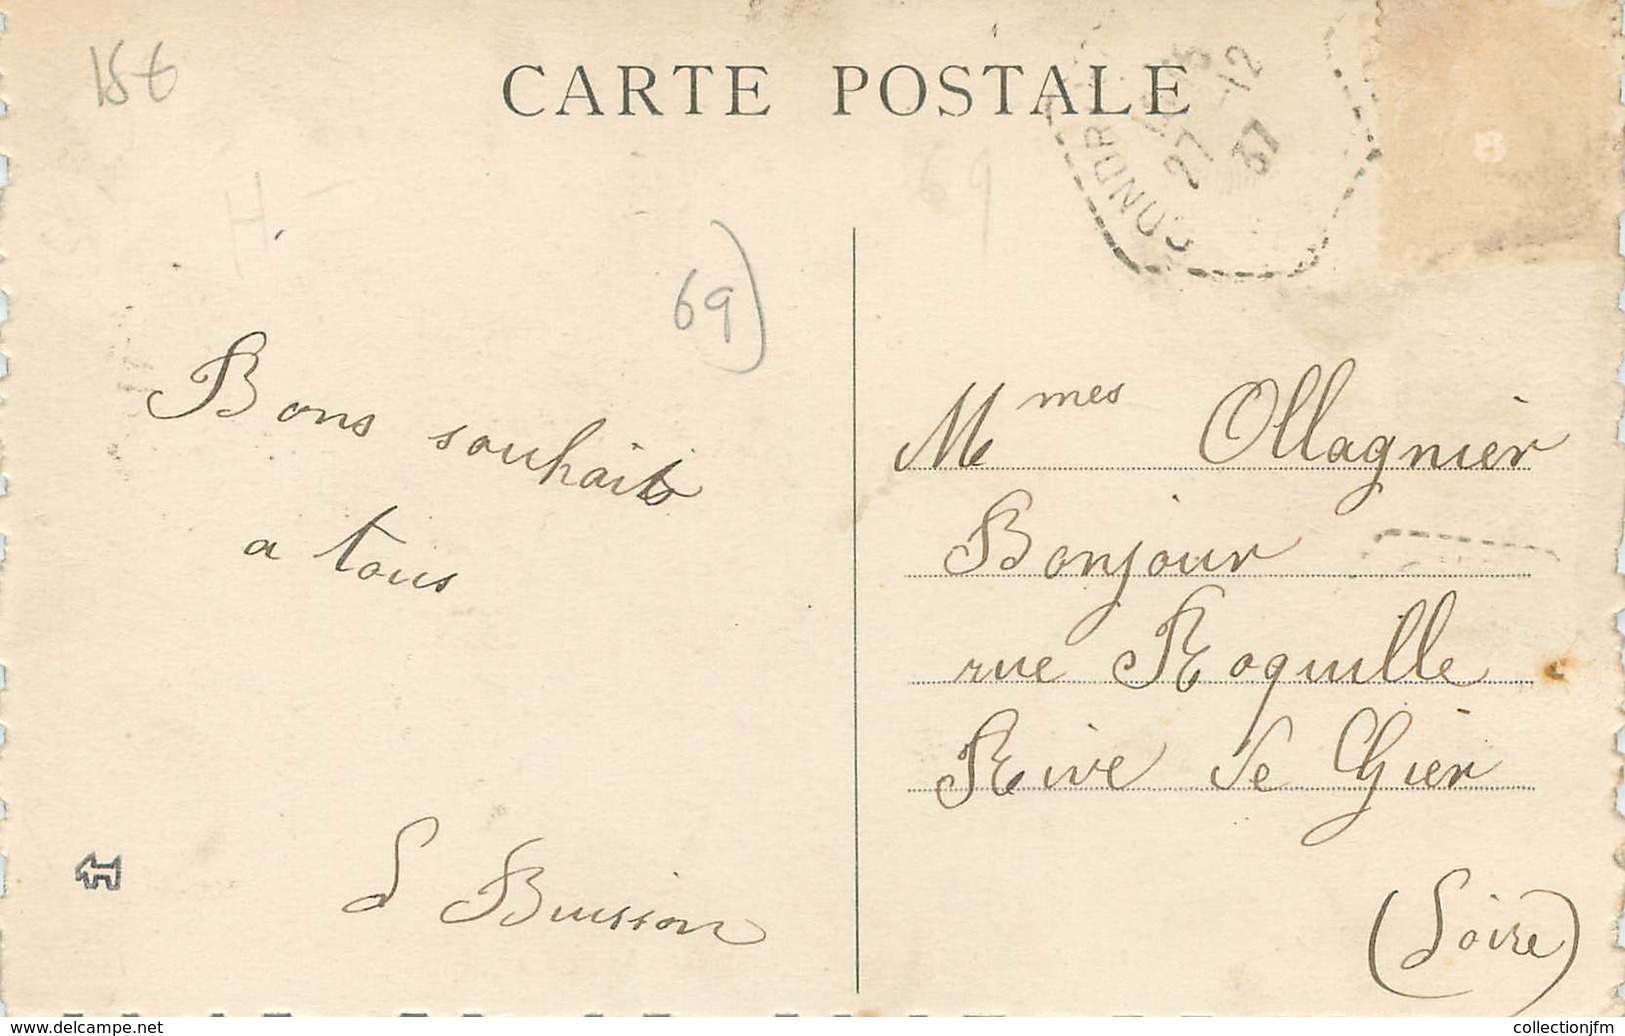 15€
CARTE POSTALE
27-12
37
H-
69
69)
Bons souhaits
a tous
L Buisson
Mmes Ollagnier
Bonjour
rue Roquille
Rive de Gier
(Loire)
www.delcampe.net
collectionjfm